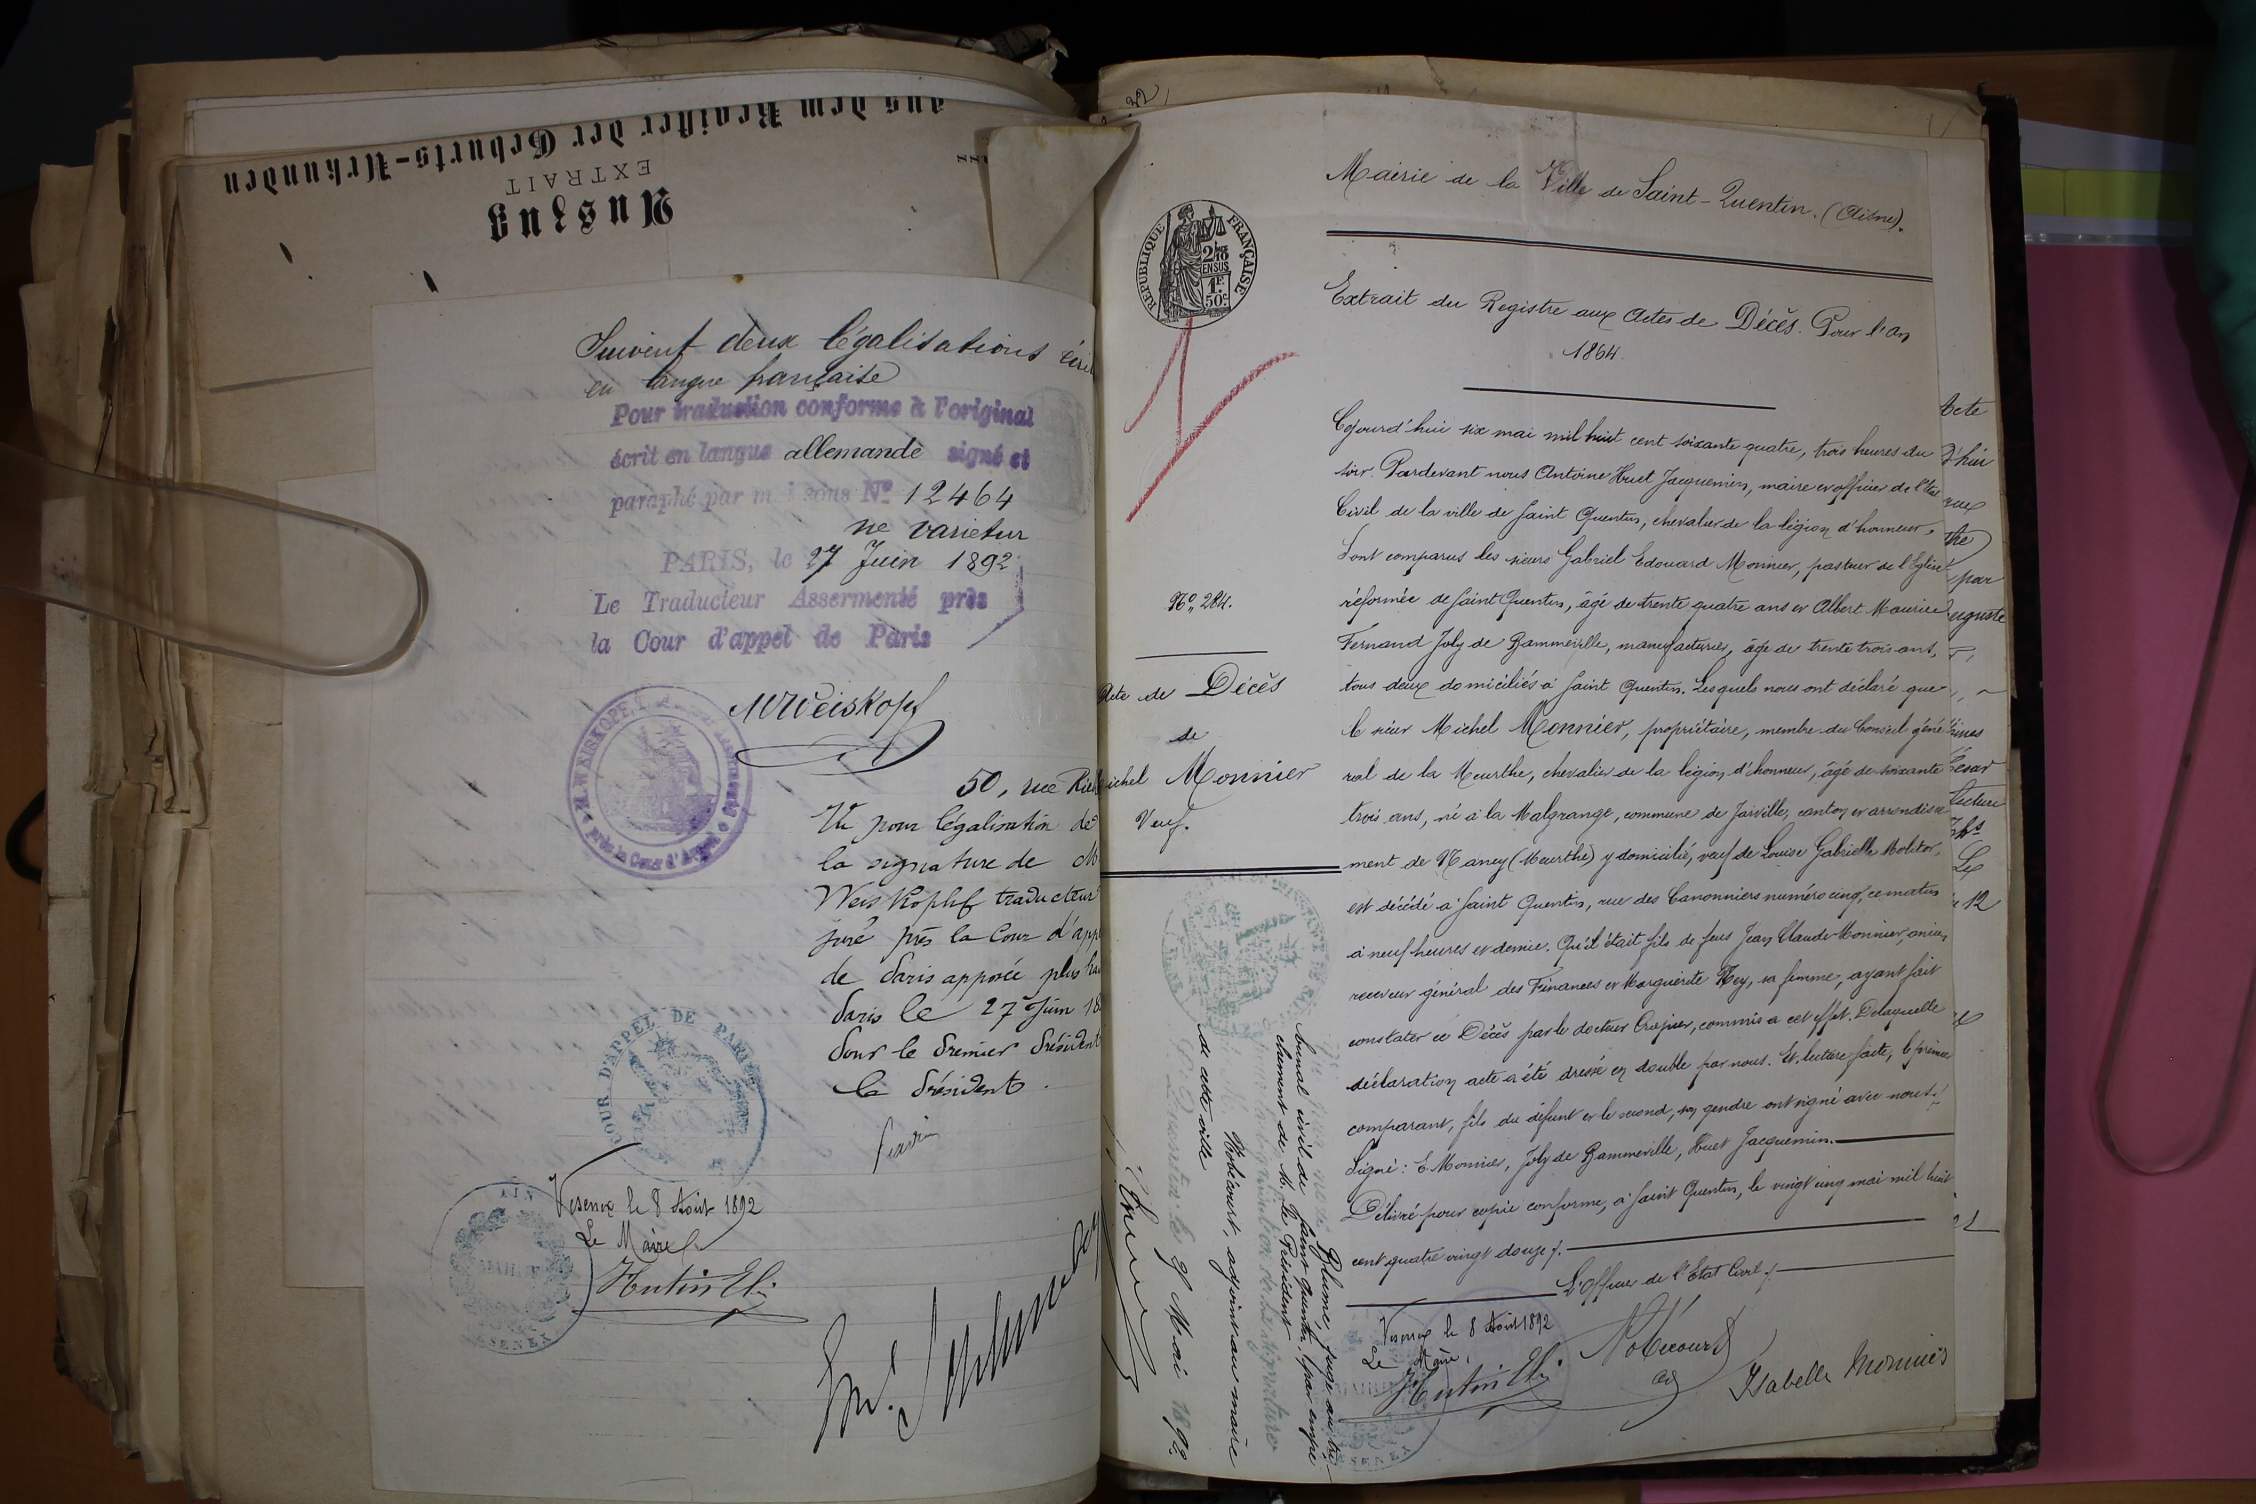 Auszug
EXTRAIT
aus dem Register der Geburts-Urkunden
Suivent deux légalisations
en langue française
Pour traduction conforme à l'original
écrit en langue allemande signé et
paraphé par moi sous No 12464
ne varietur
PARIS, le 27 Juin 1892
Le Traducteur Assermenté près
la Cour d'appel de Paris
MWeiskopf
50, rue
Vu pour légalisation de
la signature de M
Weiskophf traducteur
juré près la Cour d'app
de Paris apposée plus
Paris le 27 Juin 18
Pour le Premier Président
le Président
COUR D'APPEL DE PARIS
Vesenex le 8 Août 1892
Le Maire
Hutin Eli
AIN
MAIRIE
Mairie de la Ville de Saint-Quentin. (Aisne).
REPUBLIQUE FRANÇAISE
2/10 EN SUS
1F. 50c
Extrait du Registre aux Actes de Décès. Pour l'An
1864.
No. 284.
Acte de Décès
de
Michel Monnier
Veuf.
Cejourd'hui six mai mil huit cent soixante quatre, trois heures du
soir. Pardevant nous Antoine Huet Jacquemin, maire et officier de l'Etat
Civil de la ville de Saint Quentin, chevalier de la légion d'honneur.
Sont comparus les sieurs Gabriel Edouard Monnier, pasteur de l'Eglise
réformée de Saint Quentin, âgé de trente quatre ans et Albert Maurice
Fernand Joly de Bammeville, manufacturier, âgé de trente trois ans,
tous deux domiciliés à Saint Quentin. Lesquels nous ont déclaré que
le sieur Michel Monnier, propriétaire, membre du Conseil géné
ral de la Meurthe, chevalier de la légion d'honneur, âgé de soixante
trois ans, né à la Malgrange, commune de Jarville, canton et arrondisse
ment de Nancy (Meurthe) y domicilié, veuf de Louise Gabrielle Molitor,
est décédé à Saint Quentin, rue des Canonniers numéro cinq, ce matin
à neuf heures et demie. Qu'il était fils de feus Jean Claude Monnier, ancien
receveur général des Finances et Marguerite Ney, sa femme, ayant fait
constater ce Décès par le docteur commis à cet effet. De laquelle
déclaration acte a été dressé en double par nous. Et, lecture faite, le premier
comparant, fils du défunt et le second, son gendre ont signé avec nous.
Signé: E. Monnier, Joly de Bammeville, Huet Jacquemin.
Délivré pour copie conforme, à Saint Quentin, le vingt cinq mai mil huit
cent quatre vingt douze.
L'Officier de l'Etat Civil
Vesenex le 8 Août 1892
Le Maire,
Hutin Eli
Nobécourt
adj
Isabelle Monnier
Blume, juge au tri-
bunal civil de Saint Quentin, (par empê
chement de M. le Président
signature
Nobécourt, adjoint au maire
de cette ville
Quentin le 9 Mai 1892
Acte
d'hui
par
Auguste
César
lecture
Le
12